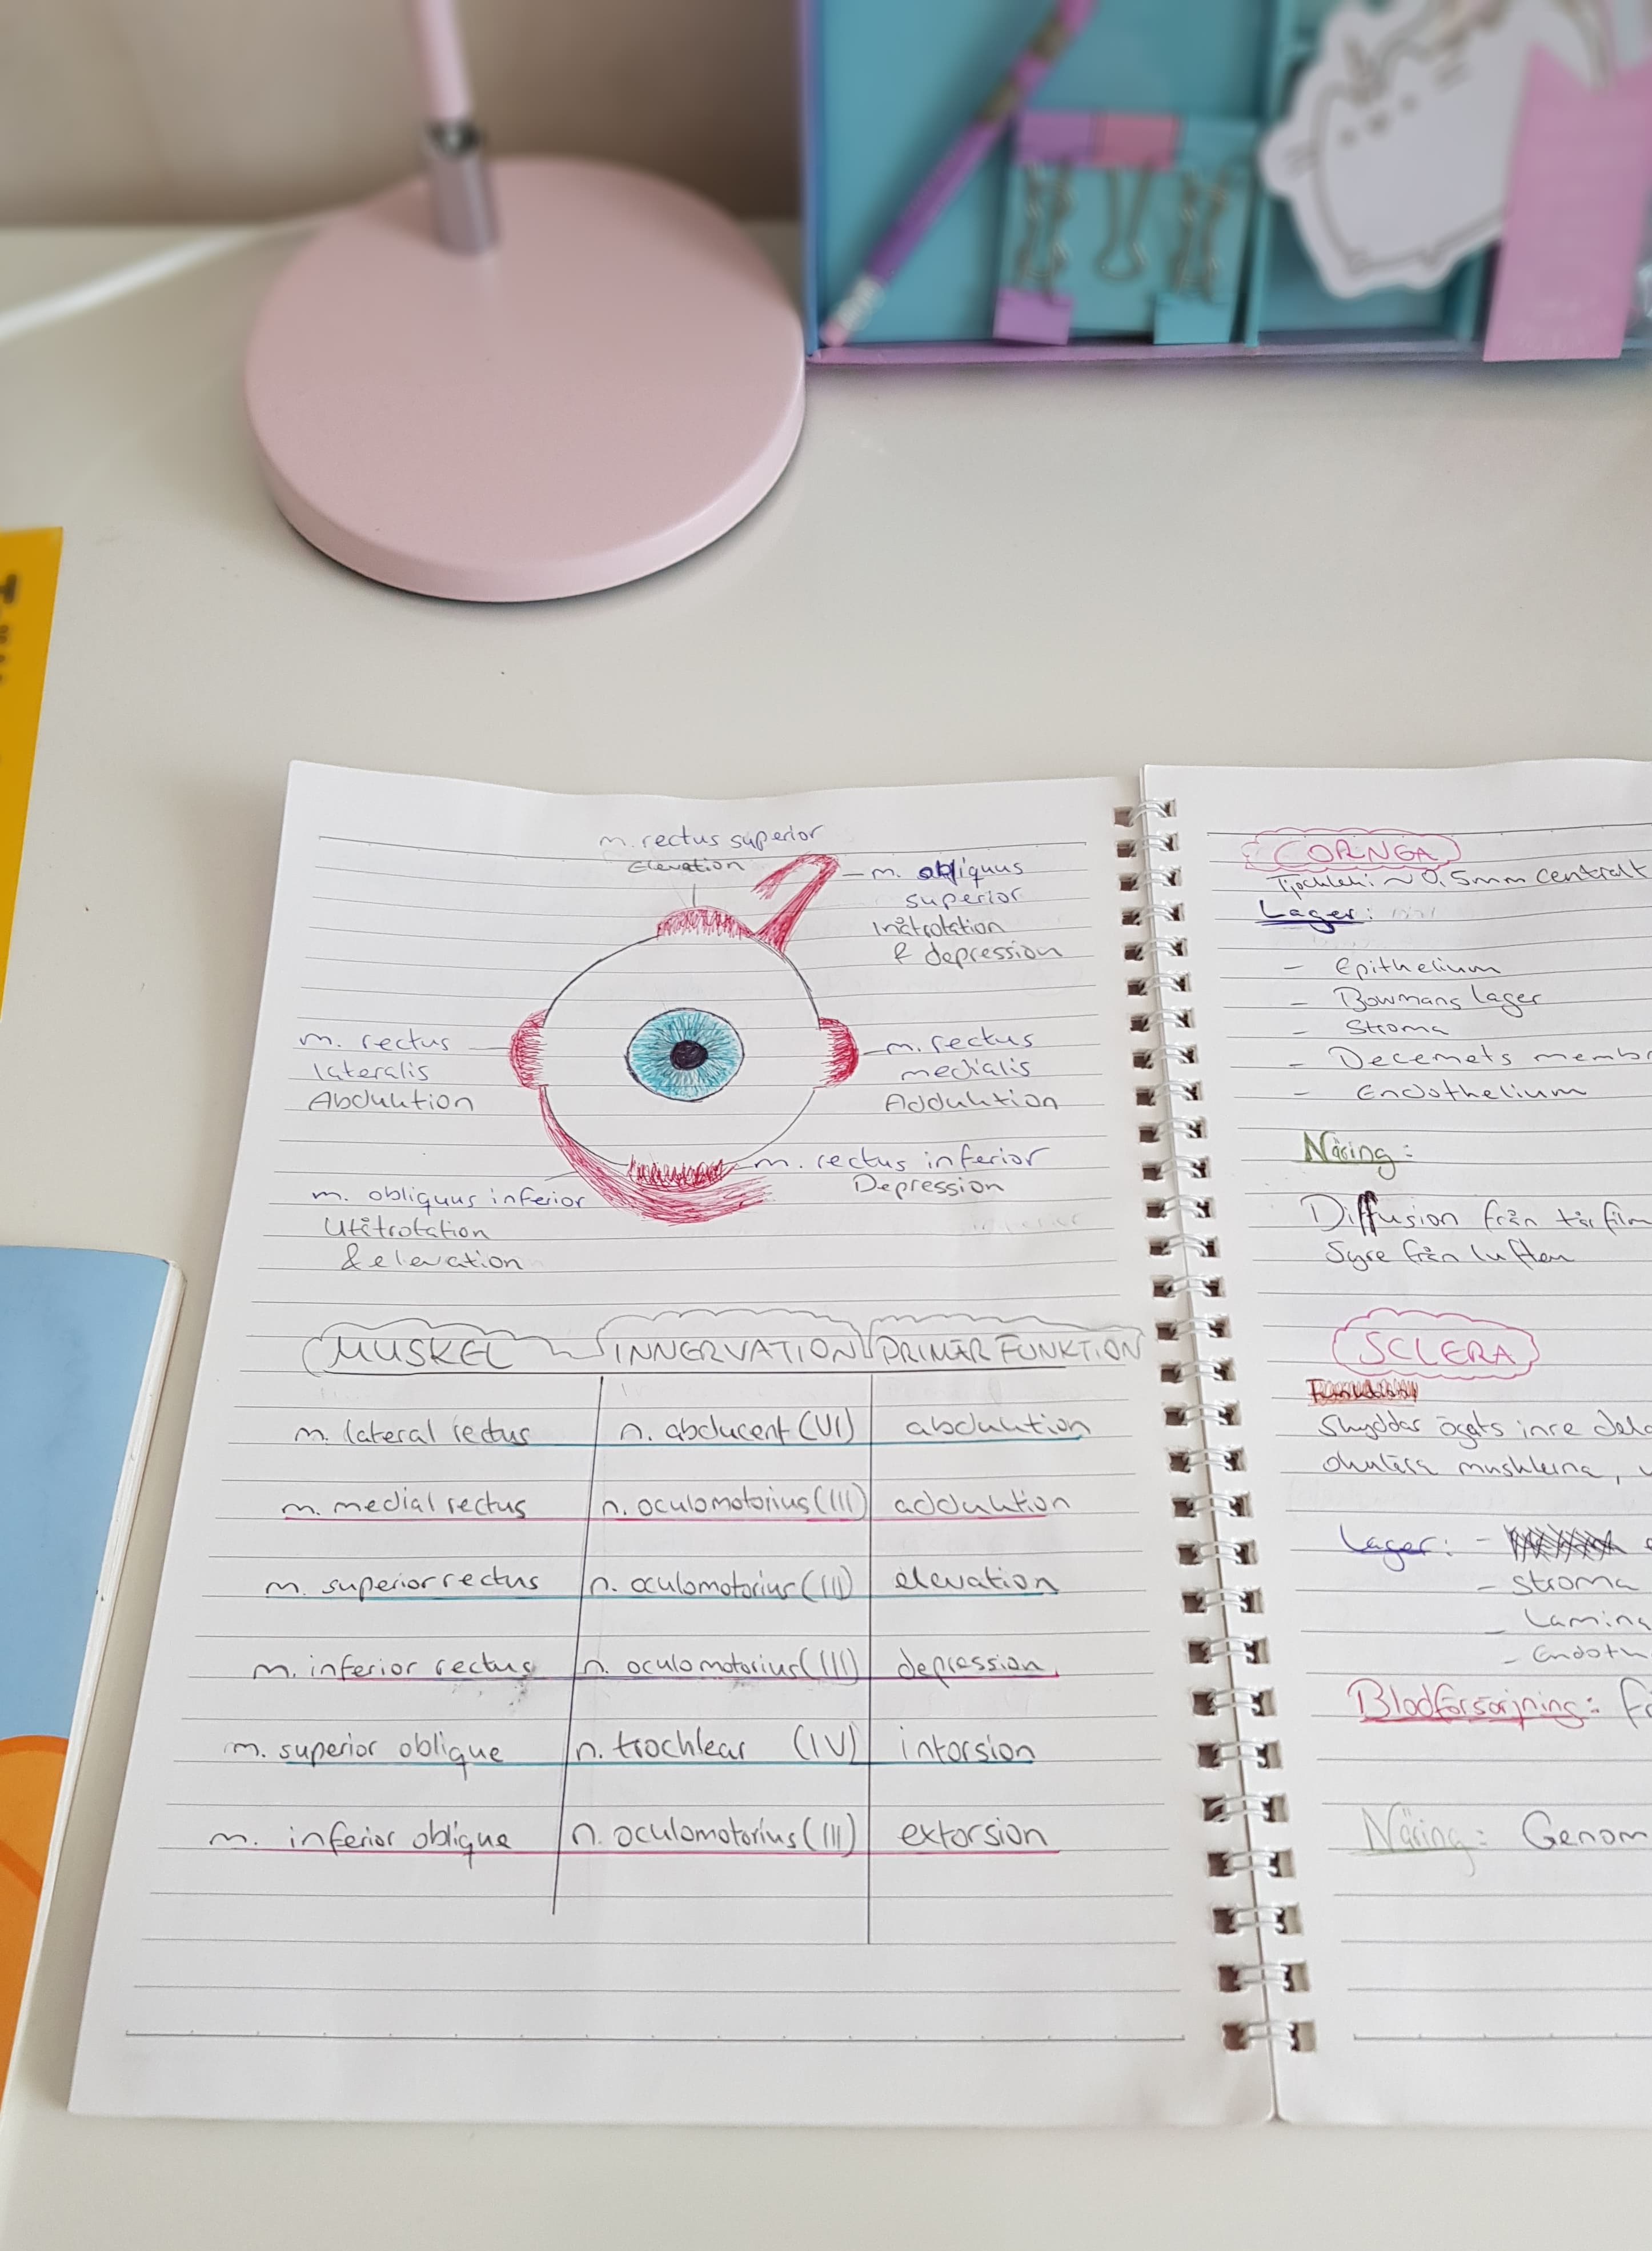 m. rectus superior
Elevation
m. obliquus
superior
Inåtrotation
& depression
m. rectus
lateralis
Abduktion
m. rectus
medialis
Adduktion
m. rectus inferior
Depression
m. obliquus inferior
Utåtrotation
& elevation
MUSKEL INNERVATION PRIMÄR FUNKTION
m. lateral rectus n. abducent (VI) abduktion
m. medial rectus n. oculomotorius (III) adduktion
m. superior rectus n. oculomotorius (III) elevation
m. inferior rectus n. oculomotorius (III) depression
m. superior oblique n. trochlear (IV) intorsion
m. inferior oblique n. oculomotorius (III) extorsion
CORNEA
Tjocklek: ~0,5mm centralt
Lager:
- Epithelium
- Bowmans lager
- Stroma
- Decemets membr
- Endothelium
Näring:
Diffusion från tårfilm
Syre från luften
SCLERA
Skyddar ögats inre dela
okulära musklerna,
Lager: -
- Stroma
- Lamina
- Endoth
Blodförsörjning: Fr
Näring: Genom